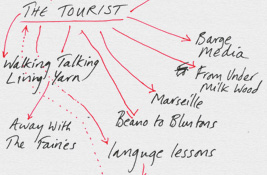 THE TOURIST
Barge
Media
Walking Talking
Living Yarn
From Under
Milk Wood
Marseille
Away With
The Fairies
Beano to Bluntons
languge lessons